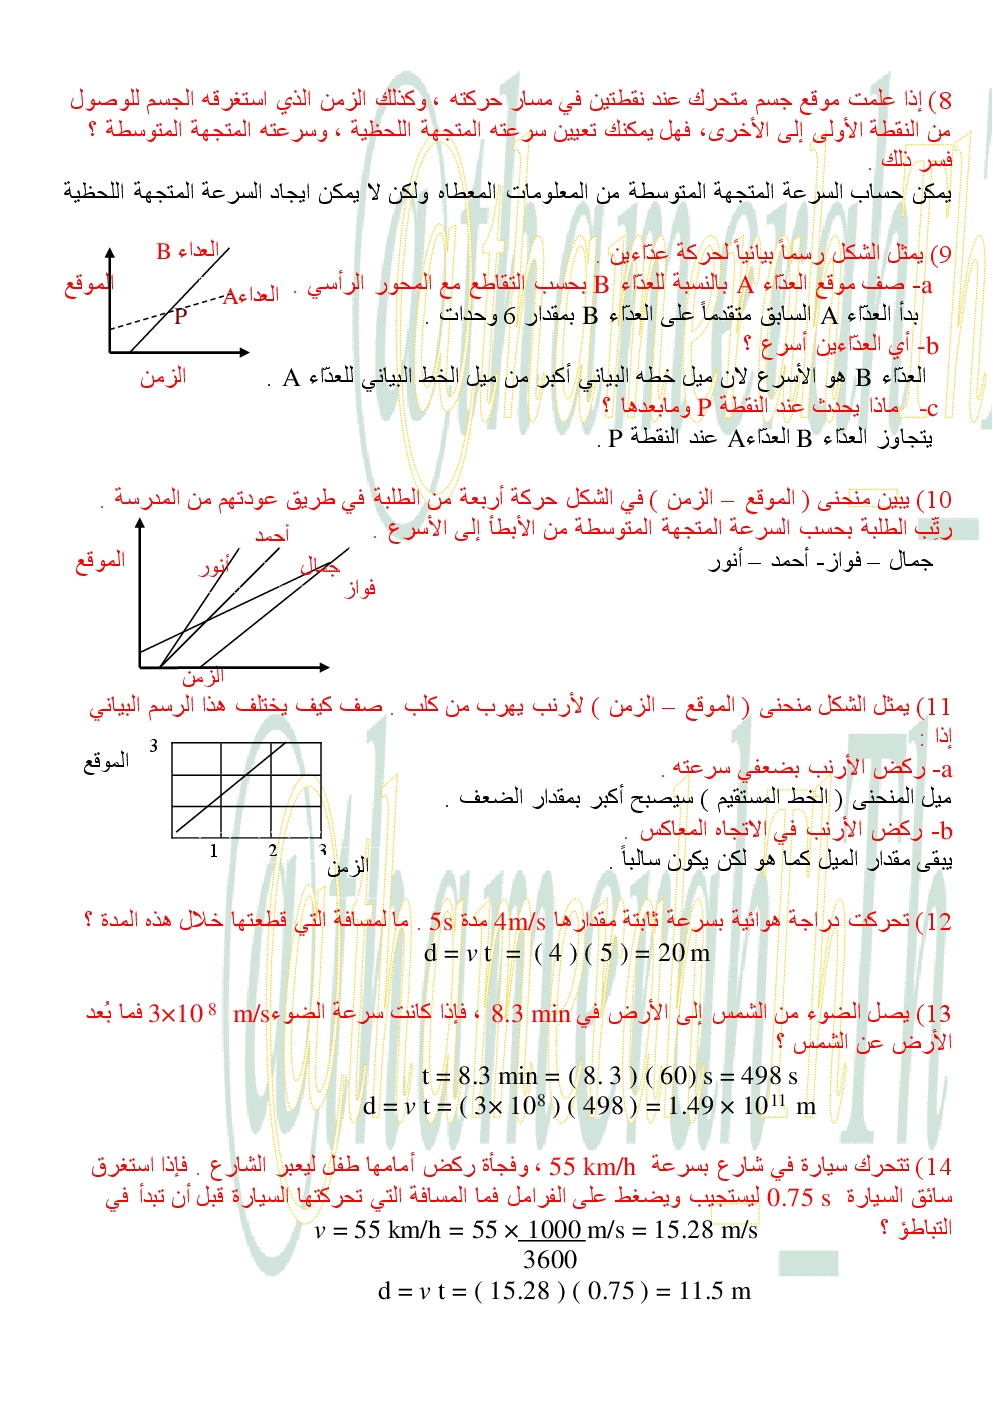 8) إذا علمت موقع جسم متحرك عند نقطتين في مسار حركته ، وكذلك الزمن الذي استغرقه الجسم للوصول
من النقطة الأولى إلى الأخرى، فهل يمكنك تعيين سرعته المتجهة اللحظية ، وسرعته المتجهة المتوسطة ؟
فسر ذلك .
يمكن حساب السرعة المتجهة المتوسطة من المعلومات المعطاه ولكن لا يمكن ايجاد السرعة المتجهة اللحظية
9) يمثل الشكل رسماً بيانياً لحركة عدّاءين .
العداء B
الموقع
العداءA
P
الزمن
a- صف موقع العدّاء A بالنسبة للعدّاء B بحسب التقاطع مع المحور الرأسي .
بدأ العدّاء A السابق متقدماً على العدّاء B بمقدار 6 وحدات .
b- أي العدّاءين أسرع ؟
العدّاء B هو الأسرع لان ميل خطه البياني أكبر من ميل الخط البياني للعدّاء A .
c- ماذا يحدث عند النقطة P ومابعدها ؟
يتجاوز العدّاء B العدّاءA عند النقطة P .
10) يبين منحنى ( الموقع – الزمن ) في الشكل حركة أربعة من الطلبة في طريق عودتهم من المدرسة .
رتّب الطلبة بحسب السرعة المتجهة المتوسطة من الأبطأ إلى الأسرع .
جمال – فواز- أحمد – أنور
أحمد
الموقع
أنور
جمال
فواز
الزمن
11) يمثل الشكل منحنى ( الموقع – الزمن ) لأرنب يهرب من كلب . صف كيف يختلف هذا الرسم البياني
إذا :
3
الموقع
1 2 3
الزمن
a- ركض الأرنب بضعفي سرعته .
ميل المنحنى ( الخط المستقيم ) سيصبح أكبر بمقدار الضعف .
b- ركض الأرنب في الاتجاه المعاكس .
يبقى مقدار الميل كما هو لكن يكون سالباً .
12) تحركت دراجة هوائية بسرعة ثابتة مقدارها 4m/s مدة 5s . ما لمسافة التي قطعتها خلال هذه المدة ؟
d = v t = ( 4 ) ( 5 ) = 20 m
13) يصل الضوء من الشمس إلى الأرض في 8.3 min ، فإذا كانت سرعة الضوء 3×10⁸ m/s فما بُعد
الأرض عن الشمس ؟
t = 8.3 min = ( 8. 3 ) ( 60) s = 498 s
d = v t = ( 3× 10⁸ ) ( 498 ) = 1.49 × 10¹¹ m
14) تتحرك سيارة في شارع بسرعة 55 km/h ، وفجأة ركض أمامها طفل ليعبر الشارع . فإذا استغرق
سائق السيارة 0.75 s ليستجيب ويضغط على الفرامل فما المسافة التي تحركتها السيارة قبل أن تبدأ في
التباطؤ ؟
v = 55 km/h = 55 × 1000 m/s = 15.28 m/s
3600
d = v t = ( 15.28 ) ( 0.75 ) = 11.5 m